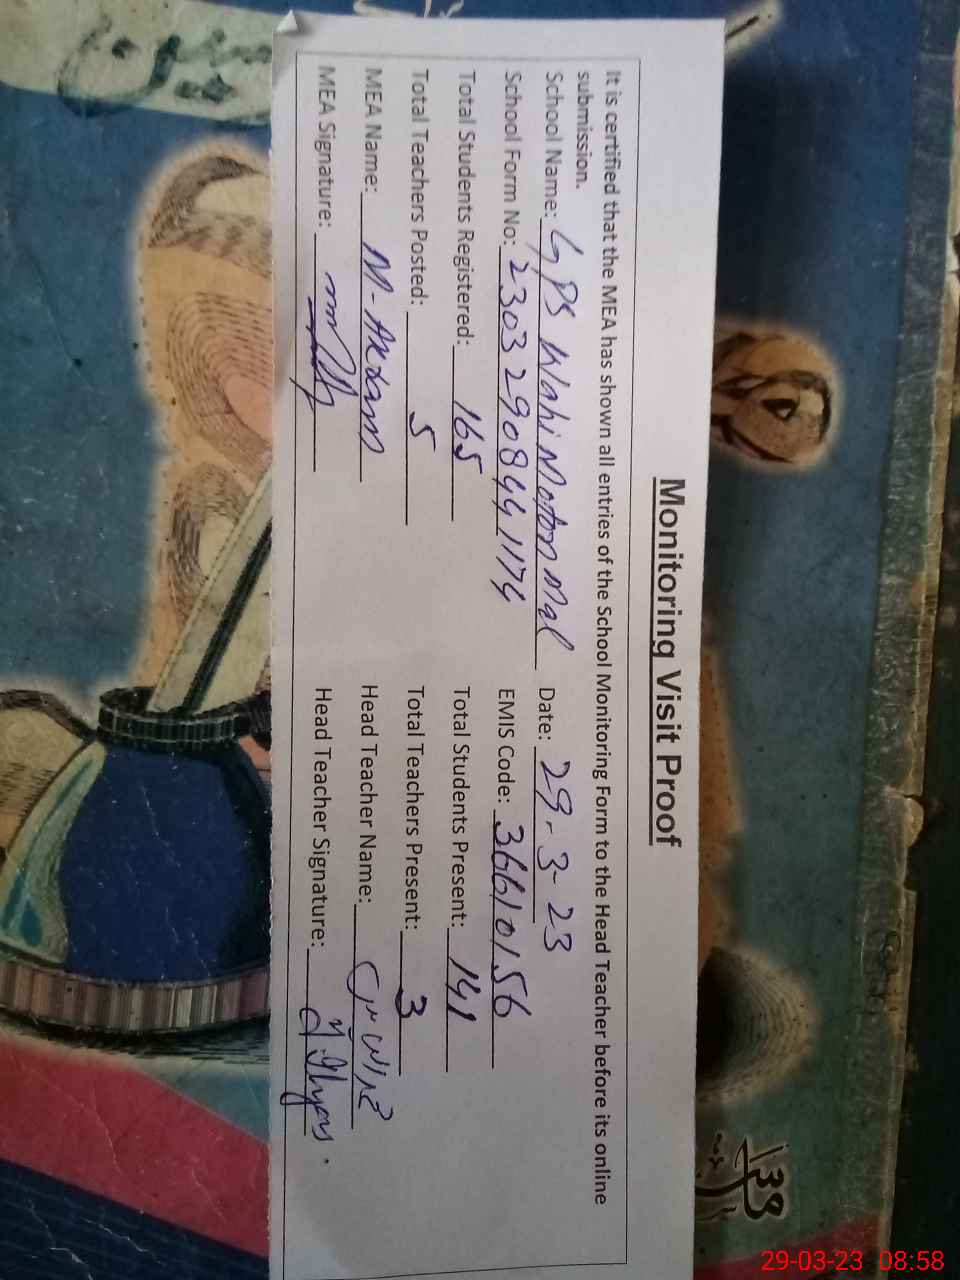 Monitoring Visit Proof
It is certified that the MEA has shown all entries of the School Monitoring Form to the Head Teacher before its online
submission.
School Name: GPS Wahi Noton Mal Date: 29-3-23
School Form No: 23032908441174 EMIS Code: 36610156
Total Students Registered: 165 Total Students Present: 141
Total Teachers Posted: 5 Total Teachers Present: 3
MEA Name: M-Akram Head Teacher Name:
MEA Signature: Head Teacher Signature:
29-03-23 08:58